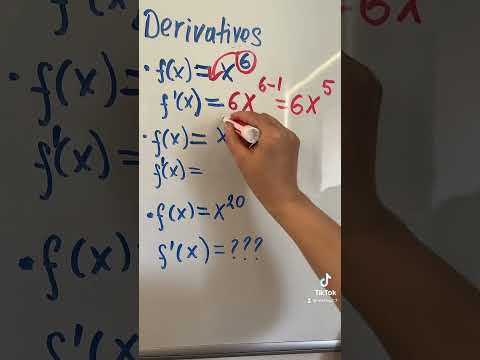 Derivatives
• f(x) = x⁶
f'(x) = 6x⁶⁻¹ = 6x⁵
• f(x) = x
f'(x) =
• f(x) = x²⁰
f'(x) = ???
TikTok